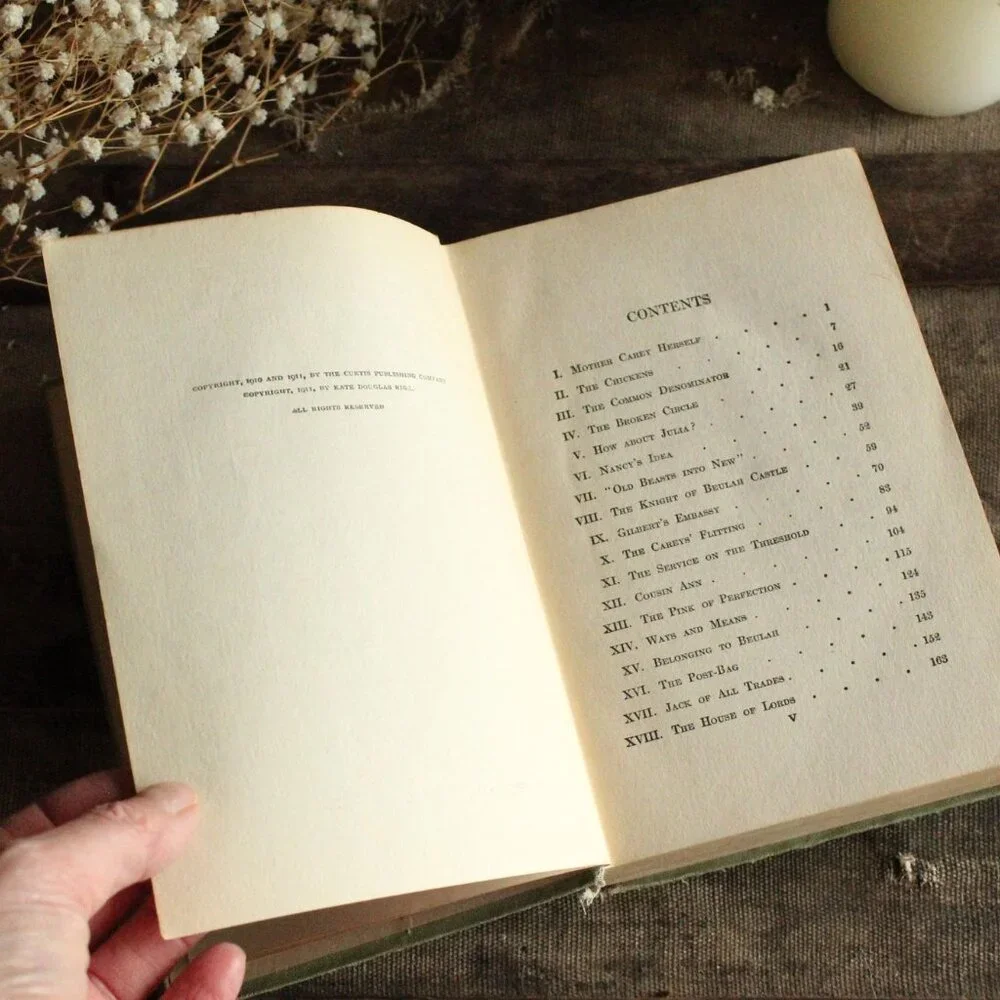 COPYRIGHT, 1910 AND 1911, BY THE CURTIS PUBLISHING COMPANY
COPYRIGHT, 1911, BY KATE DOUGLAS
ALL RIGHTS RESERVED
CONTENTS
I. MOTHER CAREY HERSELF 1
II. THE CHICKENS 7
III. THE COMMON DENOMINATOR 16
IV. THE BROKEN CIRCLE 21
V. HOW ABOUT JULIA? 27
VI. NANCY'S IDEA 39
VII. "OLD BEASTS INTO NEW" 52
VIII. THE KNIGHT OF BEULAH CASTLE 59
IX. GILBERT'S EMBASSY 70
X. THE CAREYS' FLITTING 83
XI. THE SERVICE ON THE THRESHOLD 94
XII. COUSIN ANN 104
XIII. THE PINK OF PERFECTION 115
XIV. WAYS AND MEANS 124
XV. BELONGING TO BEULAH 135
XVI. THE POST-BAG 143
XVII. JACK OF ALL TRADES 152
XVIII. THE HOUSE OF LORDS 163
V